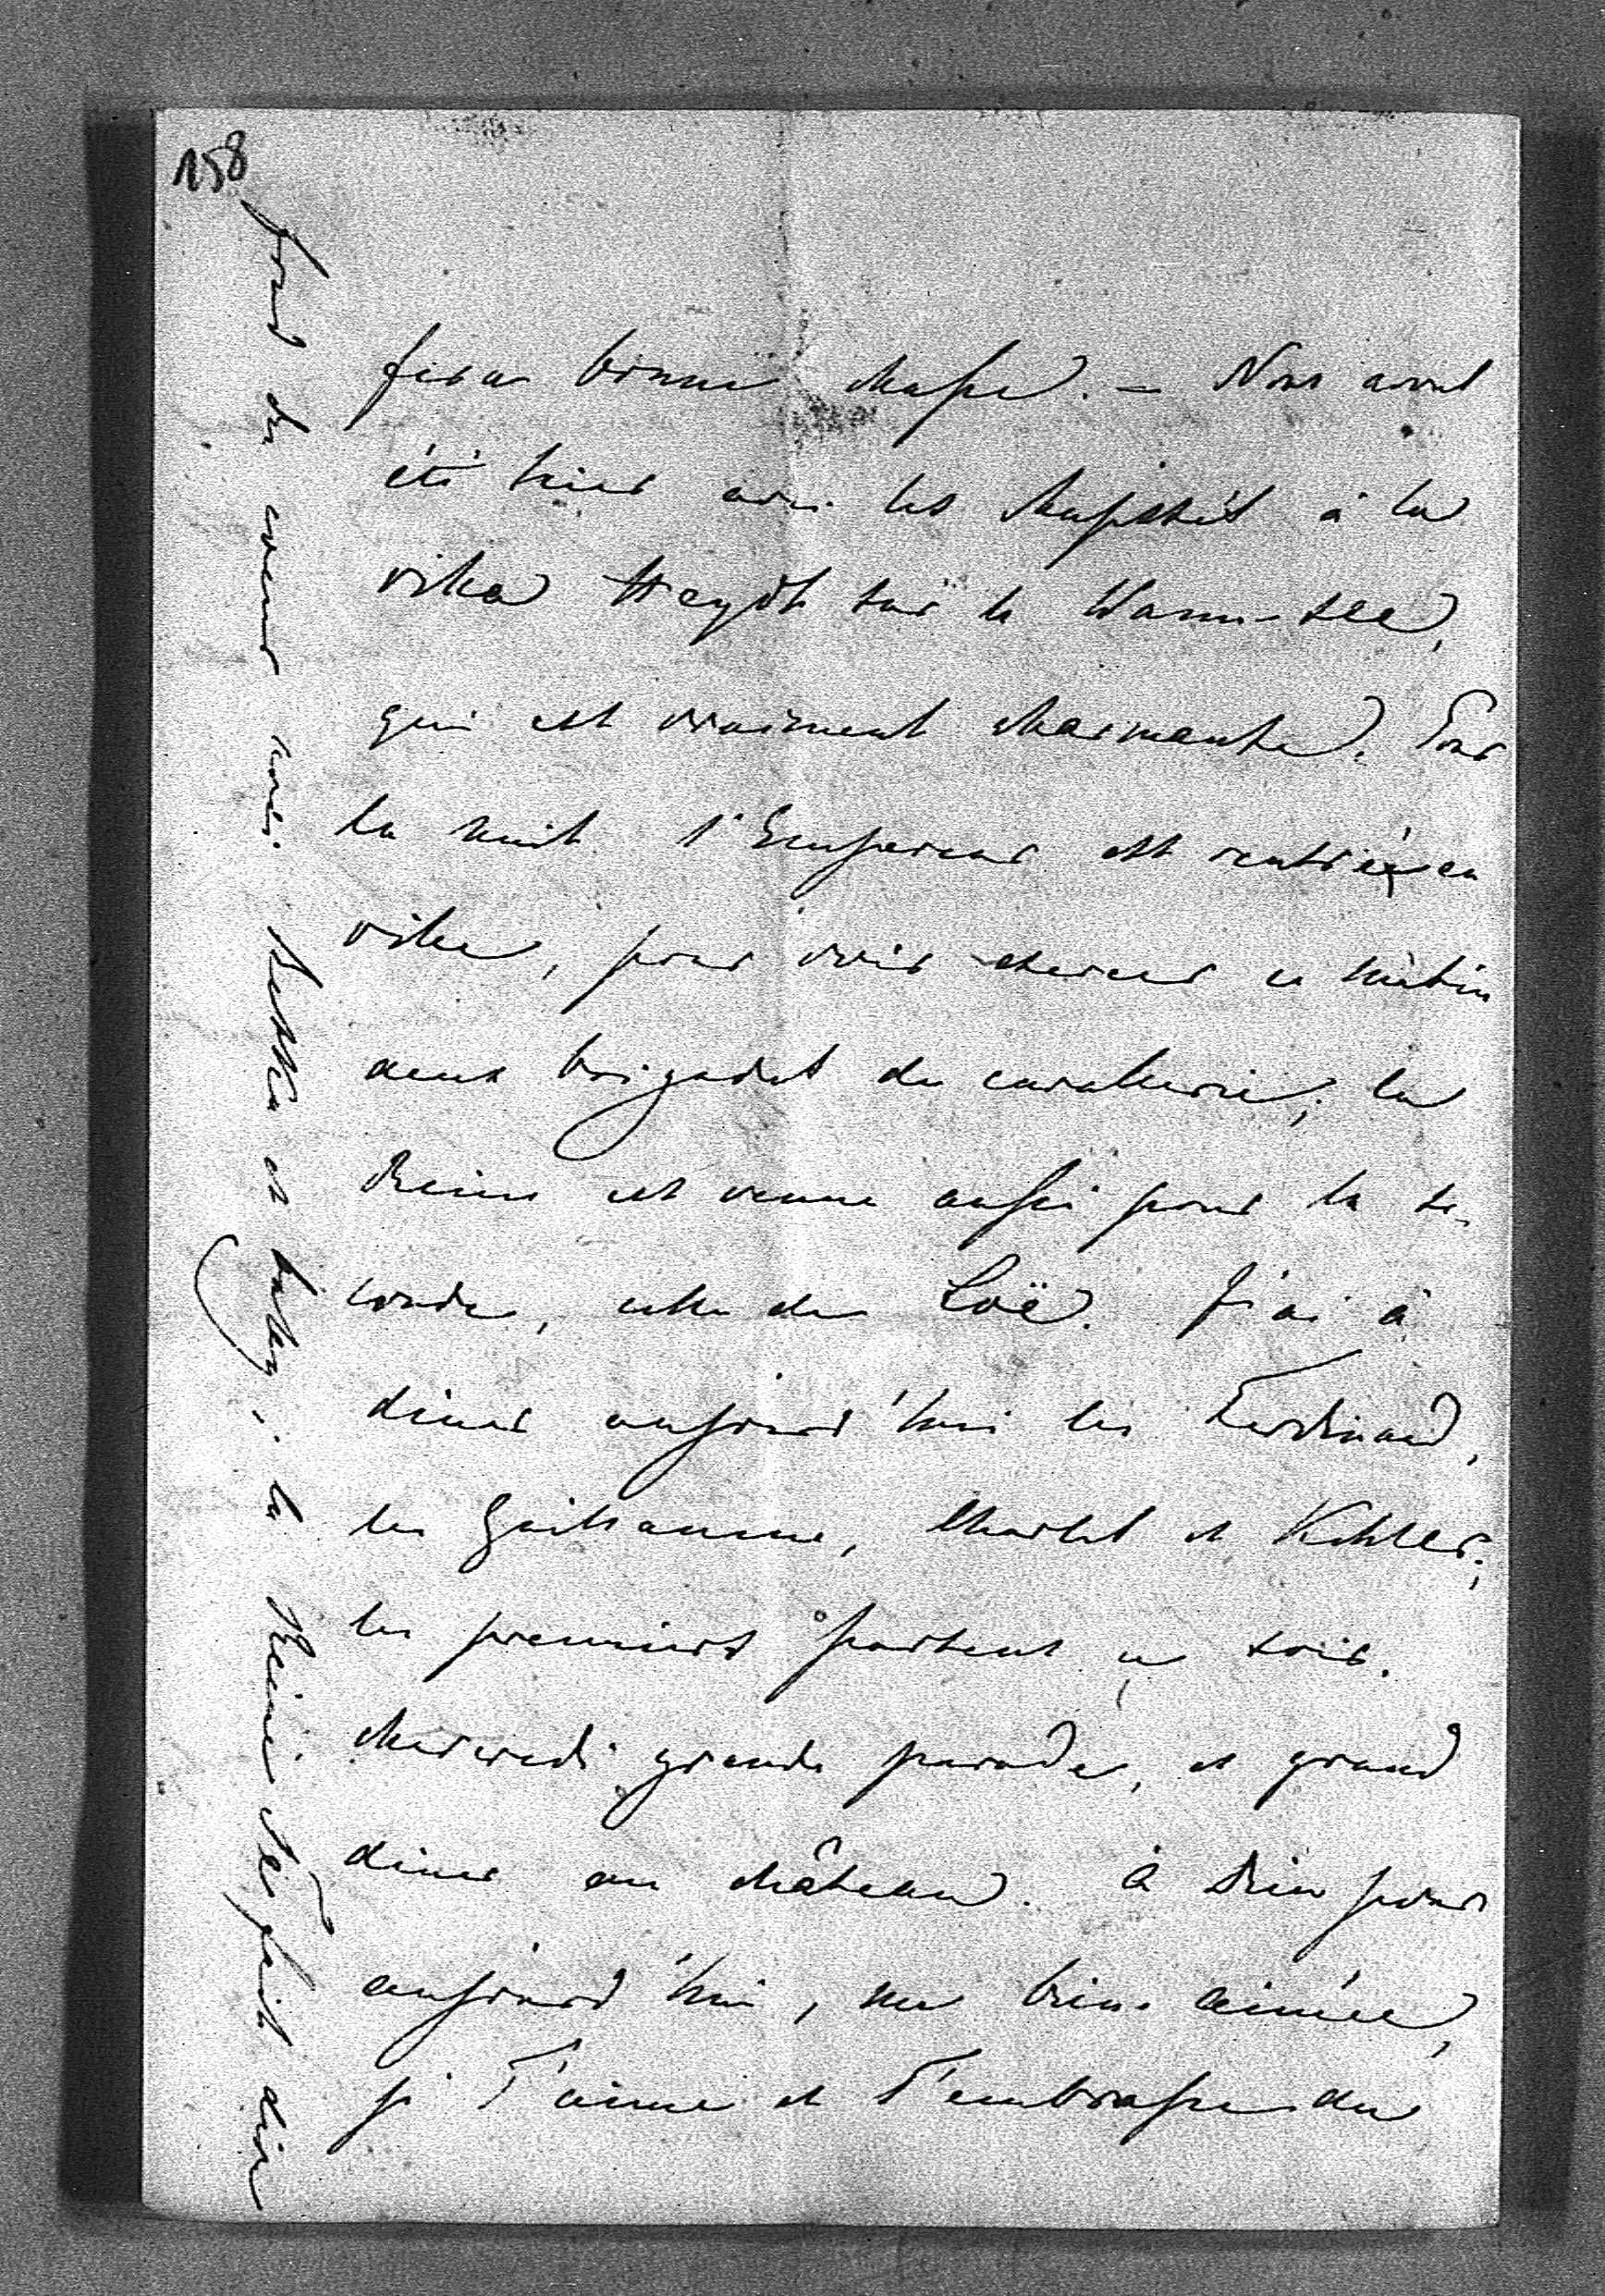 158
fera bonne chasse. – Nous avons
été hier avec les Majestés à la
villa Heydt sur le Wann-see,
qui est vraiment charmante. Pour
la nuit l'Empereur est rentré en
ville, pour voir exercer ce matin
deux brigades de cavallerie; la
Reine est venue aussi pour la se-
conde, celle de Loë. J'ai à
diner aujourd'hui les Ferdinand,
les Guillaume, Charles et Köhler;
les premiers partent ce soir.
Mercredi grande parade, et grand
diner au château. à Dieu pour
aujourd'hui, ma bien aimée,
je T'aime et T'embrasse du
fond du coeur. la Reine Te fait dire